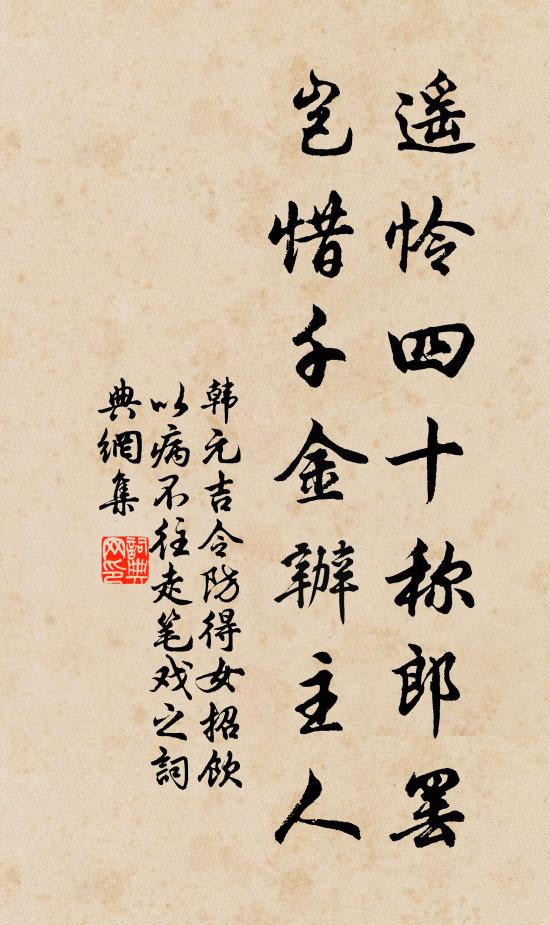 遥怜四十称郎罢
岂惜千金辦主人
韩元吉令防得女招饮
以病不往走笔戏之詞
典網集
詞典网印